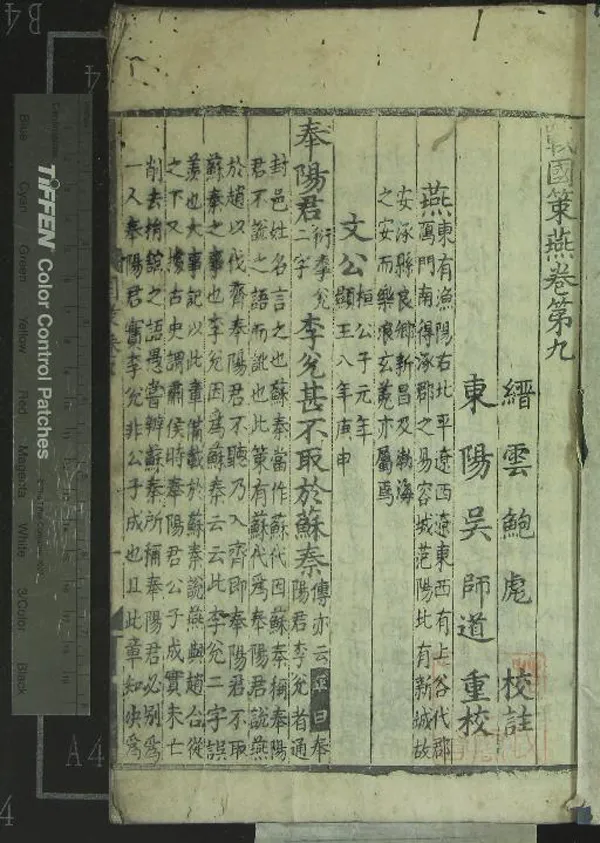 戰國策燕卷第九
縉雲鮑彪校註
東陽吳師道重校
燕東有漁陽右北平遼西遼東西有上谷代郡
鴈門南得涿郡之易容城范陽北有新城故
安涿縣良鄉新昌及渤海
之安而樂浪玄菟亦屬焉
文公桓公子元年
顯王八年庚申
奉陽君衍奉陽君李兊二字李兊甚不取於蘇秦傳亦云正曰奉
陽君李兊者通
封邑姓名言之也蘇秦當作蘇代因蘇秦稱奉陽
君不說之語而訛也此策有蘇代為奉陽君說燕
於趙以伐齊奉陽君不聽乃入齊即奉陽君不取
蘇秦之事也李兊因為蘇秦云云此李兊二字誤
羨也大事記以此章備載於蘇秦說燕與趙合從
之下又據古史謂肅侯時奉陽君公子成實未亡
削去捐館之語愚嘗辨蘇秦所稱奉陽君必別為
一人奉陽君實李兊非公子成也且此章知決為
TIFFEN Color Control Patches
Blue
Cyan
Green
Yellow
Red
Magenta
White
3/Color
Black
B4
A4
4
4